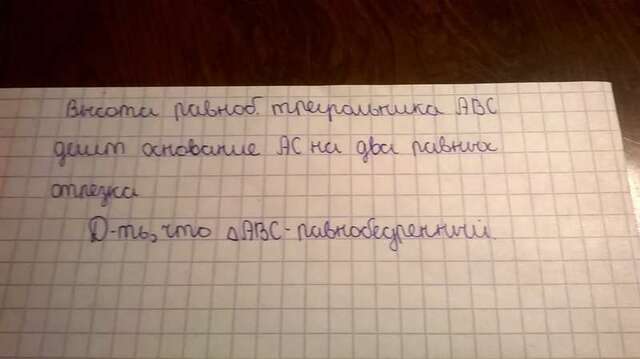 Высота равноб. треугольника ABC
делит основание AC на два равных
отрезка
Д-ть, что △ABC - равнобедренный.